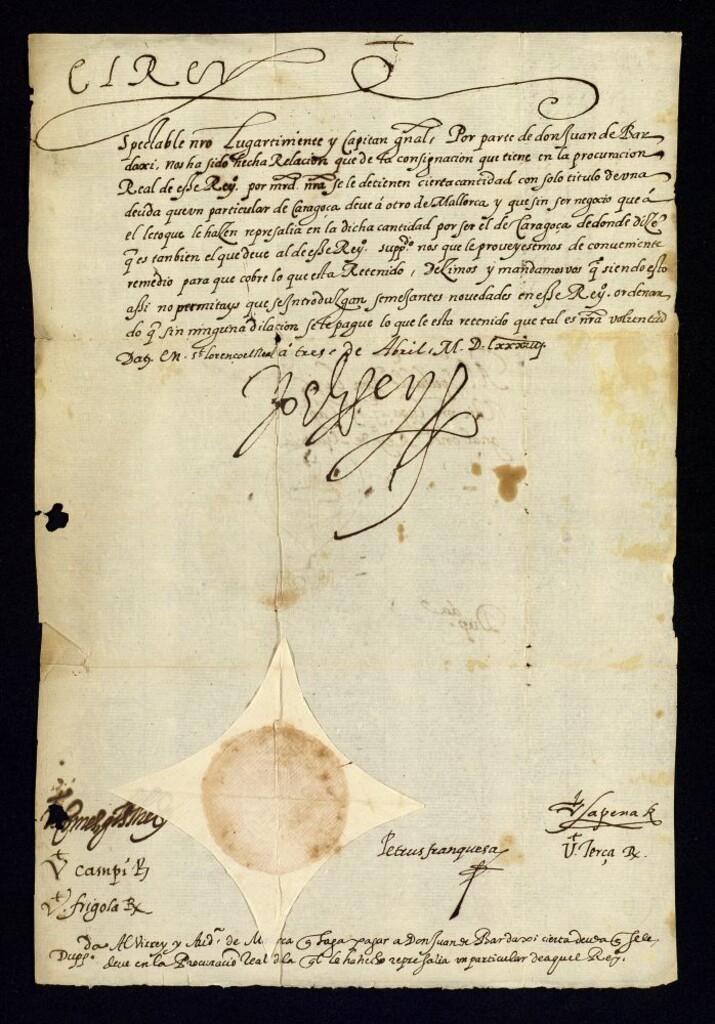 El Rey
Spectable nro Lugartiniente y Capitan gñal, Por parte de don Juan de Bar
daxi, nos ha sido hecha Relacion que de la consignacion que tiene en la procuracion
Real de esse Rey.º por mrd. nrã se le detienen cierta cantidad con solo titulo de vna
deuda que vn particular de Caragoça deue á otro de Mallorca y que sin ser negocio que á
el le toque le hazen represalia en la dicha cantidad por ser el de Caragoça de donde dize
q̃ es tambien el que deue al de esse Rey.º supp.do nos que le proueyessemos de conueniente
remedio para que cobre lo que esta Retenido, Dezimos y mandamos vos q̃ siendo esto
assi no permitays que se Introduzgan semejantes nouedades en esse Rey.º ordenan
do q̃ sin ninguna dilacion se le pague lo que le esta retenido que tal es nrã voluntad
Datt. En. S.t Lorenço el Real á trese de Abril, M. D. Lxxxiiij
Yo el Rey
Dup.da
V.t Sapena R.
V.t campi R.
Petrus franquesa
V.t Terça R.
V.t frigola R.
Dup.da Al Virrey y Aud.a de M.rca q̃ haga pagar a Don Juan de Bardaxi cierta deuda q̃ se le
deue en la Procuració Real d la q̃l le ha hecho represalia vn particular de aquel Rey.º